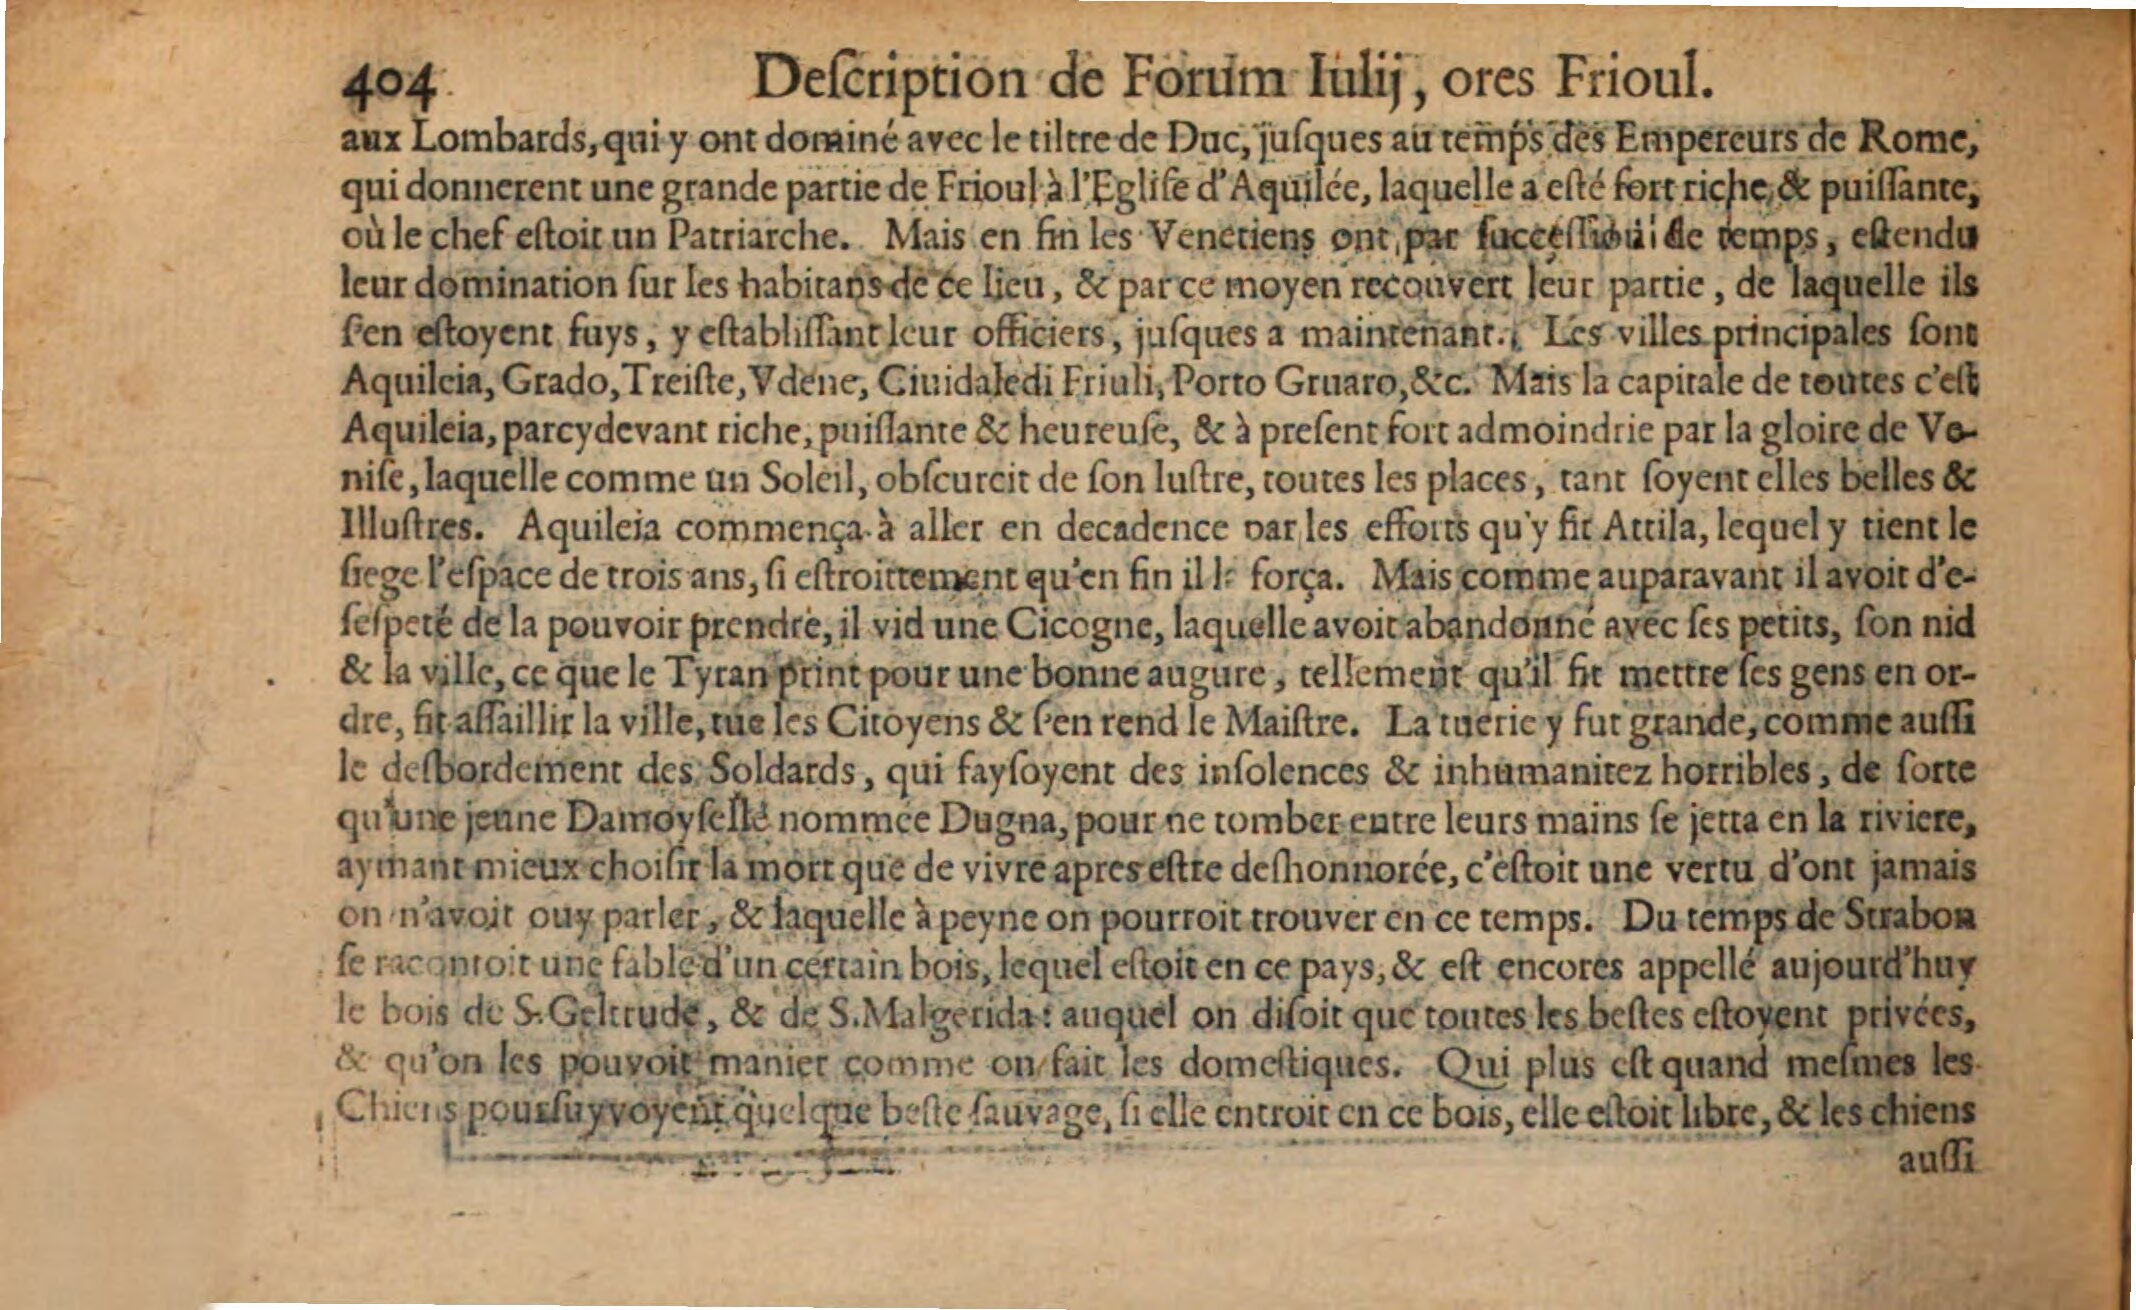 404 Deſcription de Forum Iulij, ores Frioul.
aux Lombards, qui y ont dominé avec le tiltre de Duc, juſques au temps des Empereurs de Rome,
qui donnerent une grande partie de Frioul à l'Egliſe d'Aquilée, laquelle a eſté fort riche, & puiſſante,
où le chef eſtoit un Patriarche. Mais en fin les Venetiens ont, par ſucceſſion de temps, eſtendu
leur domination ſur les habitans de ce lieu, & par ce moyen recouvert leur partie, de laquelle ils
ſ'en eſtoyent fuys, y eſtabliſſant leur officiers, juſques a maintenant. Les villes principales ſont
Aquileia, Grado, Treiſte, Vdene, Ciuidaledi Friuli, Porto Gruaro, &c. Mais la capitale de toutes c'eſt
Aquileia, parcydevant riche, puiſſante & heureuſe, & à preſent fort admoindrie par la gloire de Ve-
niſe, laquelle comme un Soleil, obſcurcit de ſon luſtre, toutes les places, tant ſoyent elles belles &
Illuſtres. Aquileia commença à aller en decadence par les efforts qu'y fit Attila, lequel y tient le
ſiege l'eſpace de trois ans, ſi eſtroittement qu'en fin il força. Mais comme auparavant il avoit d'e-
ſeſpeté de la pouvoir prendre, il vid une Cicogne, laquelle avoit abandonné avec ſes petits, ſon nid
& la ville, ce que le Tyran print pour une bonne augure, tellement qu'il fit mettre ſes gens en or-
dre, fit aſſaillir la ville, tue les Citoyens & ſ'en rend le Maiſtre. La tuerie y fut grande, comme auſſi
le deſbordement des Soldards, qui fayſoyent des inſolences & inhumanitez horribles, de ſorte
qu'une jeune Damoyſelle nommée Dugna, pour ne tomber entre leurs mains ſe jetta en la riviere,
aymant mieux choiſir la mort que de vivre apres eſtre deſhonnorée, c'eſtoit une vertu d'ont jamais
on n'avoit ouy parler, & laquelle à peyne on pourroit trouver en ce temps. Du temps de Strabon
ſe racontoit une fable d'un certain bois, lequel eſtoit en ce pays, & eſt encores appellé aujourd'huy
le bois de S. Geltrude, & de S. Malgerida: auquel on diſoit que toutes les beſtes eſtoyent privées,
& qu'on les pouvoit manier comme on fait les domeſtiques. Qui plus eſt quand meſmes les
Chiens pourſuyvoyent quelque beſte ſauvage, ſi elle entroit en ce bois, elle eſtoit libre, & les chiens
auſſi